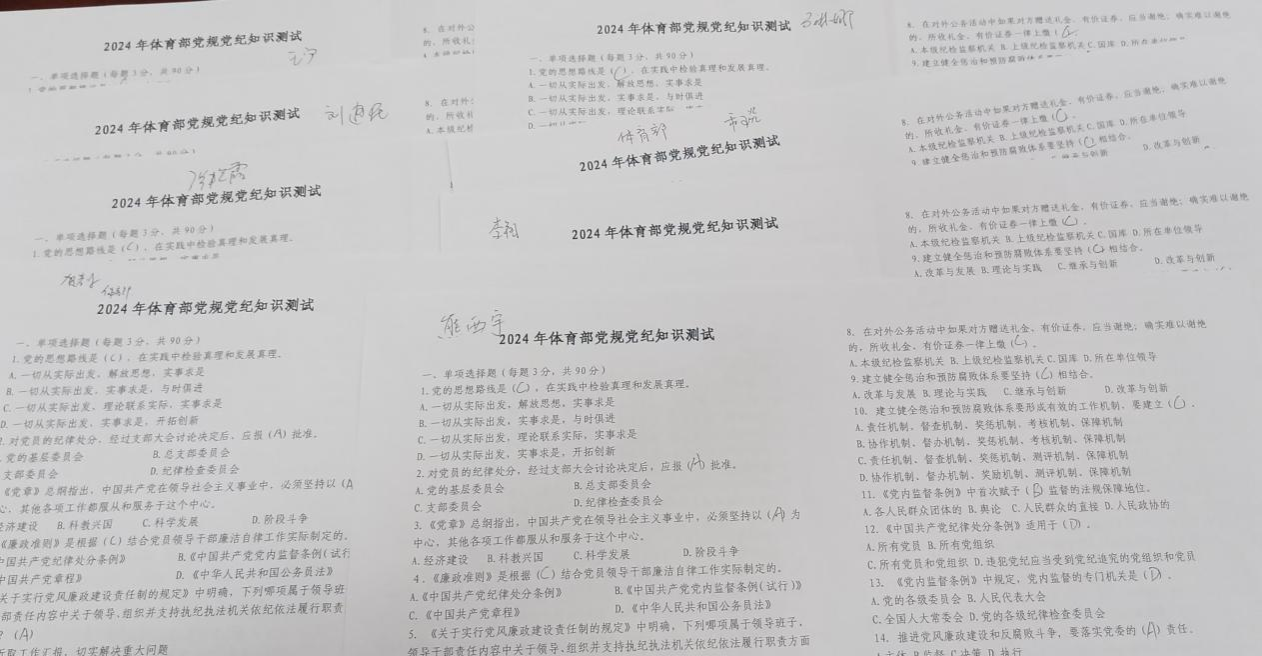 2024年体育部党规党纪知识测试
一、单项选择题（每题3分，共90分）
8. 在对外公
的，所收礼
2024年体育部党规党纪知识测试
一、单项选择题（每题3分，共90分）
1.党的思想路线是（C），在实践中检验真理和发展真理。
A. 一切从实际出发，解放思想，实事求是
B. 一切从实际出发，实事求是，与时俱进
C. 一切从实际出发，理论联系实际
8. 在对外公务活动中如果对方赠送礼金、有价证券，应当谢绝；确实难以谢绝
的，所收礼金、有价证券一律上缴（C
A.本级纪检监察机关 B.上级纪检监察机关 C.国库 D.所在单位
9.建立健全惩治和预防腐败体系
2024年体育部党规党纪知识测试 刘
8. 在对外
的，所收礼
A.本级纪检
体育部
2024年体育部党规党纪知识测试
8. 在对外公务活动中如果对方赠送礼金、有价证券，应当谢绝；确实难以谢绝
的，所收礼金、有价证券一律上缴（C）。
A.本级纪检监察机关 B.上级纪检监察机关 C.国库 D.所在单位领导
9.建立健全惩治和预防腐败体系要坚持（C）相结合。
D.改革与创新
2024年体育部党规党纪知识测试
一、单项选择题（每题3分，共90分）
1.党的思想路线是（C），在实践中检验真理和发展真理。
李
2024年体育部党规党纪知识测试
8. 在对外公务活动中如果对方赠送礼金、有价证券，应当谢绝；确实难以谢绝
的，所收礼金、有价证券一律上缴（C）。
A.本级纪检监察机关 B.上级纪检监察机关 C.国库 D.所在单位领导
9.建立健全惩治和预防腐败体系要坚持（C）相结合。
A.改革与发展 B.理论与实践 C.继承与创新 D.改革与创新
2024年体育部党规党纪知识测试
一、单项选择题（每题3分，共90分）
1.党的思想路线是（C），在实践中检验真理和发展真理。
A. 一切从实际出发，解放思想，实事求是
B. 一切从实际出发，实事求是，与时俱进
C. 一切从实际出发，理论联系实际，实事求是
D. 一切从实际出发，实事求是，开拓创新
2.对党员的纪律处分，经过支部大会讨论决定后，应报（A）批准。
党的基层委员会 B.总支部委员会
支部委员会 D.纪律检查委员会
《党章》总纲指出，中国共产党在领导社会主义事业中，必须坚持以（A
心，其他各项工作都服从和服务于这个中心。
经济建设 B.科教兴国 C.科学发展 D.阶段斗争
《廉政准则》是根据（C）结合党员领导干部廉洁自律工作实际制定的。
中国共产党纪律处分条例》 B.《中国共产党党内监督条例(试行
中国共产党章程》 D.《中华人民共和国公务员法》
关于实行党风廉政建设责任制的规定》中明确，下列哪项属于领导班
部责任内容中关于领导、组织并支持执纪执法机关依纪依法履行职责
？（A）
听取工作汇报，切实解决重大问题
熊西宇
2024年体育部党规党纪知识测试
一、单项选择题（每题3分，共90分）
1.党的思想路线是（C），在实践中检验真理和发展真理。
A. 一切从实际出发，解放思想，实事求是
B. 一切从实际出发，实事求是，与时俱进
C. 一切从实际出发，理论联系实际，实事求是
D. 一切从实际出发，实事求是，开拓创新
2.对党员的纪律处分，经过支部大会讨论决定后，应报（A）批准。
A.党的基层委员会 B.总支部委员会
C.支部委员会 D.纪律检查委员会
3.《党章》总纲指出，中国共产党在领导社会主义事业中，必须坚持以（A）为
中心，其他各项工作都服从和服务于这个中心。
A.经济建设 B.科教兴国 C.科学发展 D.阶段斗争
4.《廉政准则》是根据（C）结合党员领导干部廉洁自律工作实际制定的。
A.《中国共产党纪律处分条例》 B.《中国共产党党内监督条例(试行)》
C.《中国共产党章程》 D.《中华人民共和国公务员法》
5. 《关于实行党风廉政建设责任制的规定》中明确，下列哪项属于领导班子、
领导干部责任内容中关于领导、组织并支持执纪执法机关依纪依法履行职责方面
8. 在对外公务活动中如果对方赠送礼金、有价证券，应当谢绝；确实难以谢绝
的，所收礼金、有价证券一律上缴（C）。
A.本级纪检监察机关 B.上级纪检监察机关 C.国库 D.所在单位领导
9.建立健全惩治和预防腐败体系要坚持（C）相结合。
A.改革与发展 B.理论与实践 C.继承与创新 D.改革与创新
10. 建立健全惩治和预防腐败体系要形成有效的工作机制，要建立（C）。
A.责任机制、督查机制、奖惩机制、考核机制、保障机制
B.协作机制、督办机制、奖惩机制、考核机制、保障机制
C.责任机制、督查机制、奖惩机制、测评机制、保障机制
D.协作机制、督办机制、奖励机制、测评机制、保障机制
11.《党内监督条例》中首次赋予（B）监督的法规保障地位。
A.各人民群众团体的 B.舆论 C.人民群众的直接 D.人民政协的
12.《中国共产党纪律处分条例》适用于（D）。
A.所有党员 B.所有党组织
C.所有党员和党组织 D.违犯党纪应当受到党纪追究的党组织和党员
13. 《党内监督条例》中规定，党内监督的专门机关是（D）。
A.党的各级委员会 B.人民代表大会
C.全国人大常委会 D.党的各级纪律检查委员会
14. 推进党风廉政建设和反腐败斗争，要落实党委的（A）责任。
A.主体 B.监督 C.决策 D.执行